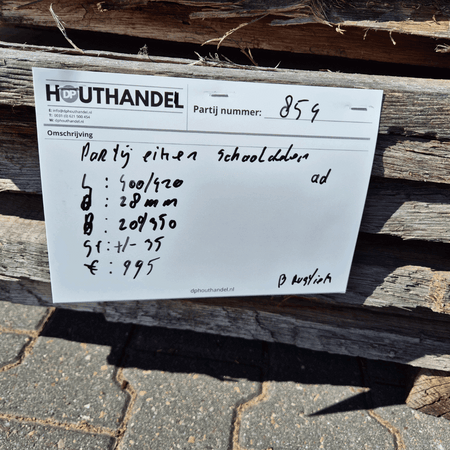 HOUTHANDEL
DP
E: info@dphouthandel.nl
W: dphouthandel.nl
Partij nummer: 859
Omschrijving
Partij eiken schaaldelen
ad
L : 400/420
d : 28 mm
B : 200/450
St : +/- 35
€ : 995
dphouthandel.nl